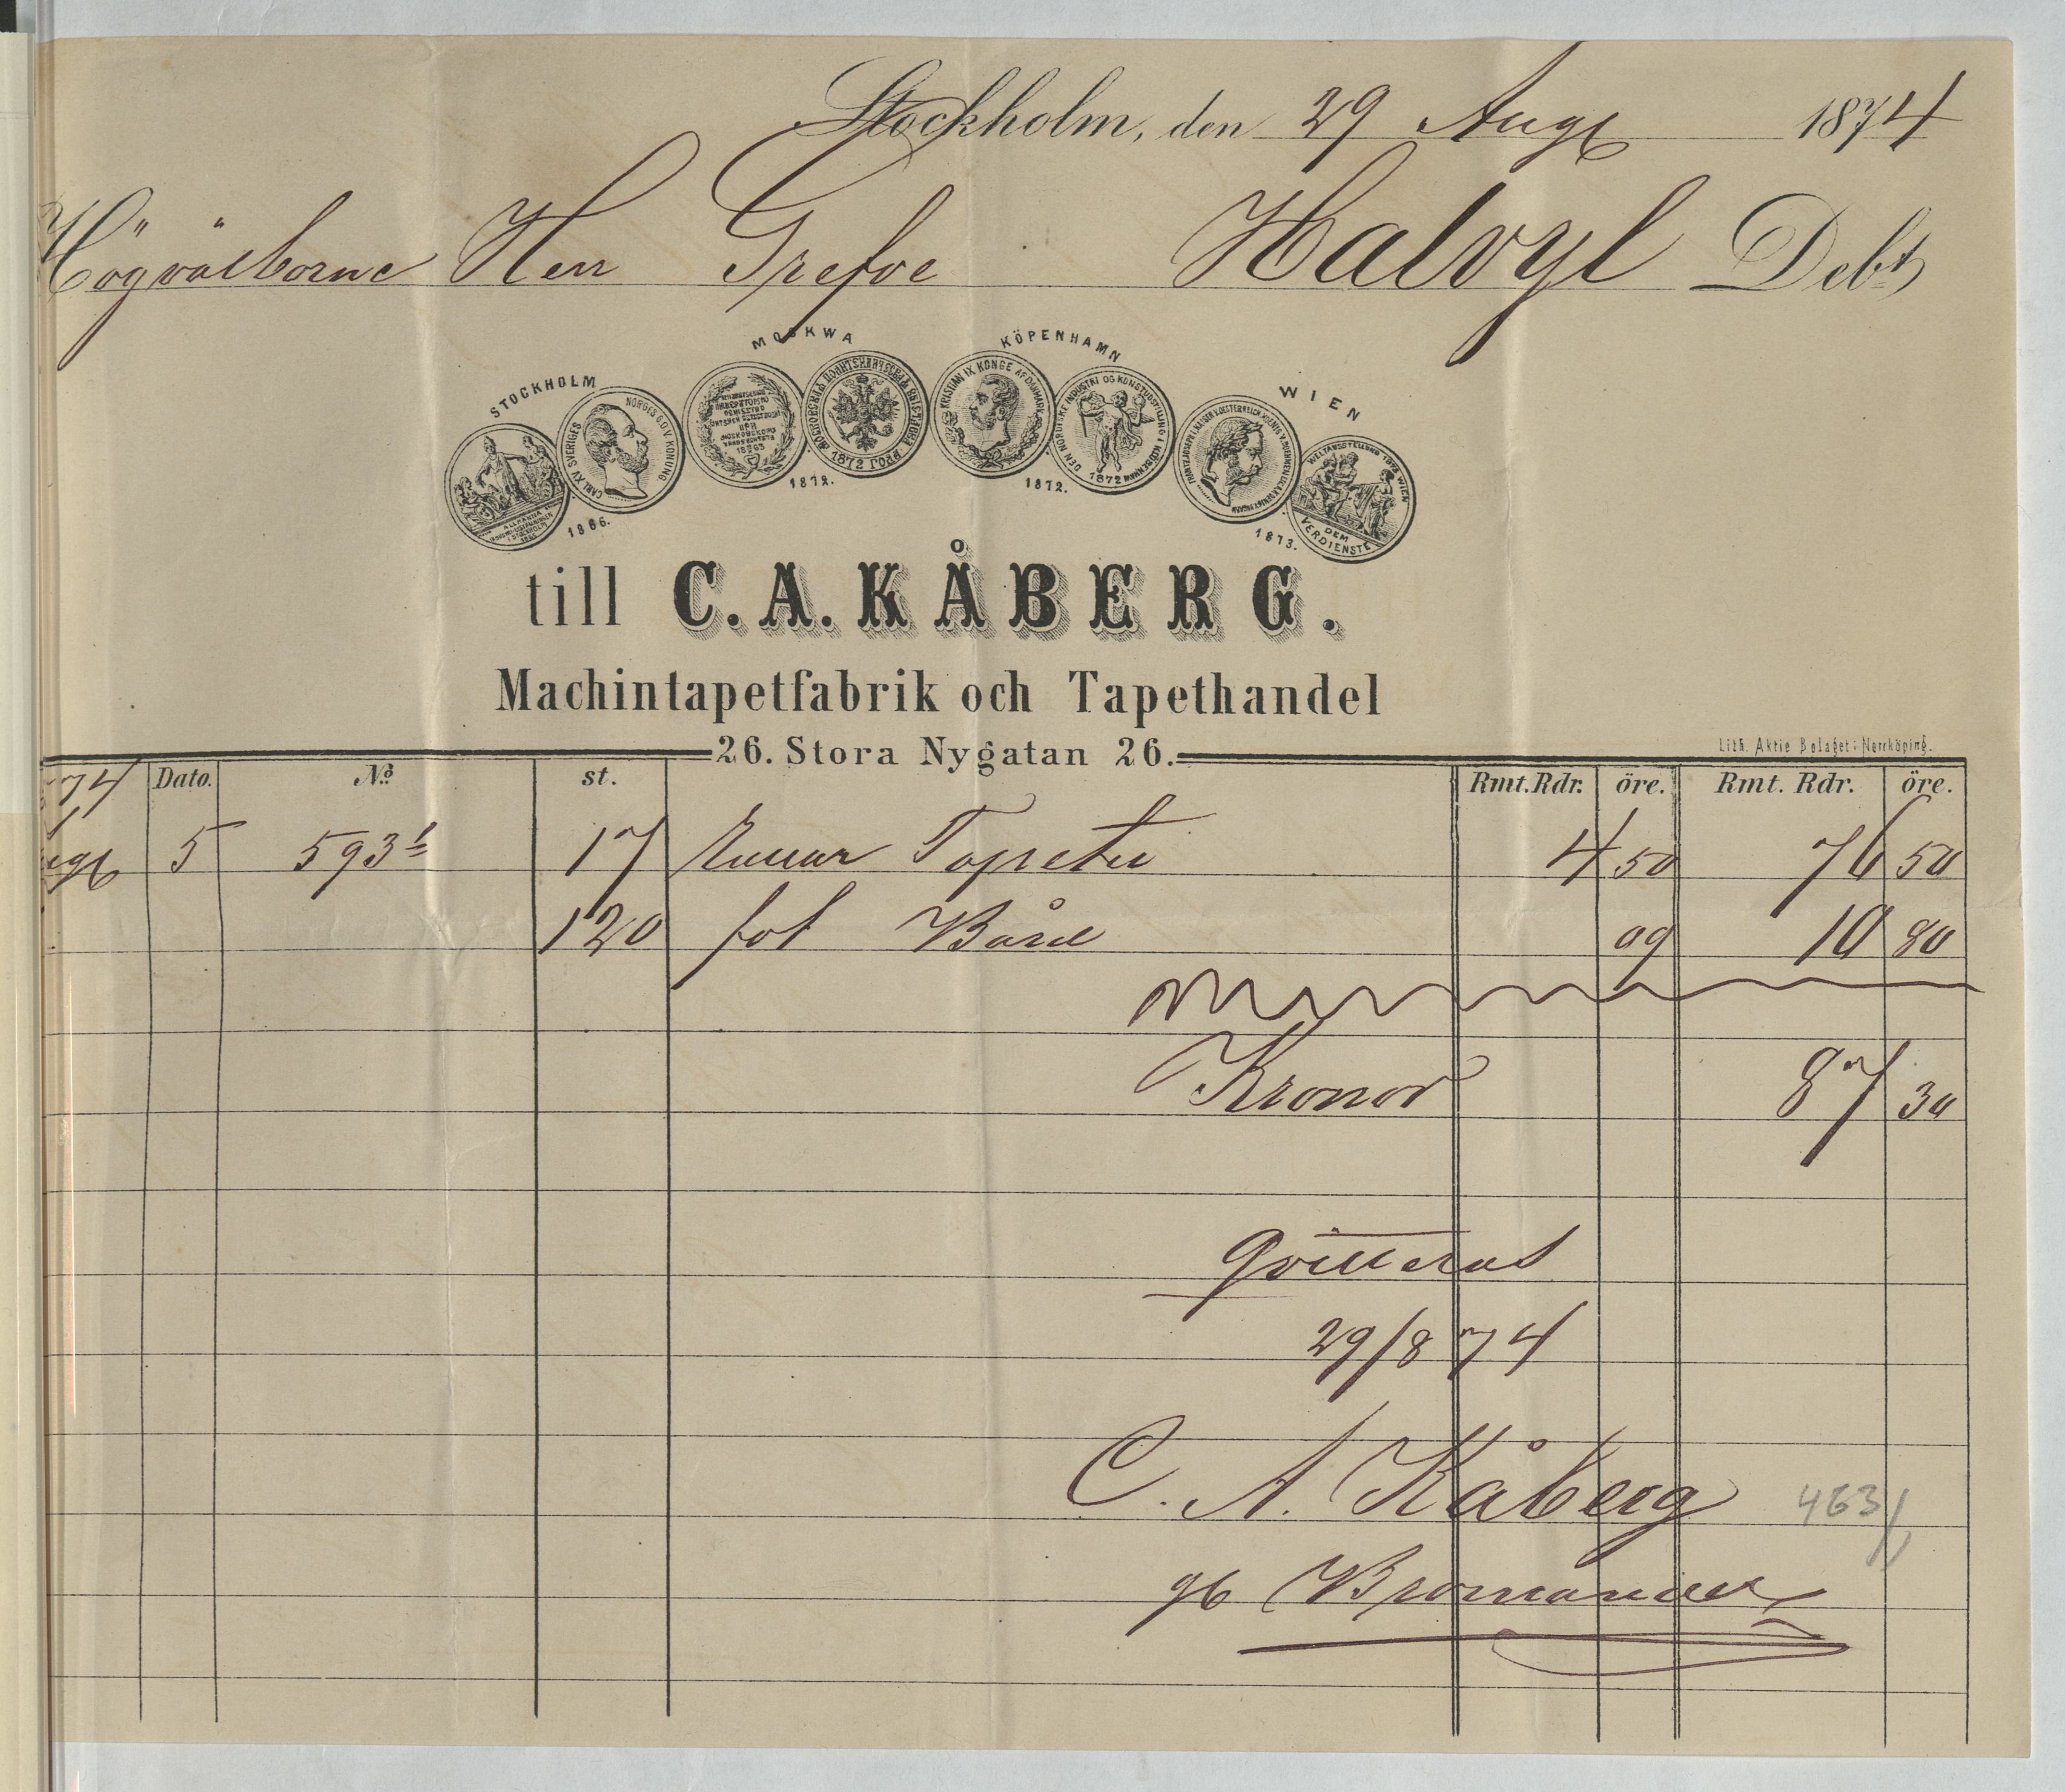 Stockholm, den 29 Aug 1874
Högvälborne Herr Grefve Halvyl Debt
STOCKHOLM MOSKWA KÖPENHAMN WIEN
CARL XV SVERIGES NORGES G.O.V. KONUNG
1872
KRISTIAN IX KONGE AF DANMARK
DEN NORDISKE INDUSTRI OG KONSTUDSTILLING I KÖBENHAVN 1872
WELTAUSSTELLUNG 1873 WIEN
DEM VERDIENSTE
1866. 1872. 1872. 1873.
till C. A. KÅBERG.
Machintapetfabrik och Tapethandel
26. Stora Nygatan 26.
Lith. Aktie Bolaget i Norrköping.
74 Dato. No st. Rmt. Rdr. öre. Rmt. Rdr. öre.
5 593 17 Tapeter 4 50 76 50
120 fot Bård 09 10 80
Kronor 87 30
Qvitteras
29/8 74
C. A. Kåberg
gb Bromander
463